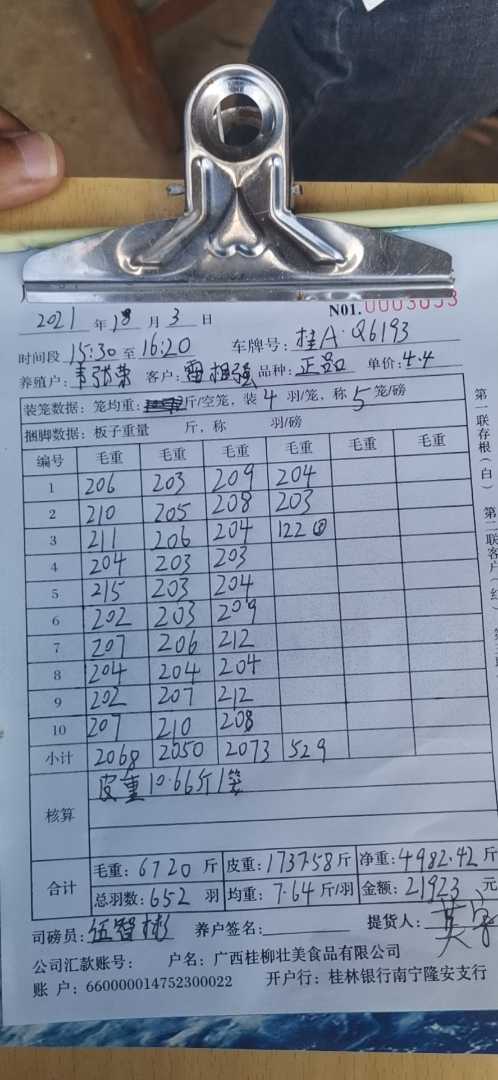 N01.0003053
2021 年 18 月 3 日
时间段 15:30 至 16:20 车牌号: 桂A·Q6193
养殖户: 客户: 雷相强 品种: 正品 单价: 4.4
装笼数据: 笼均重: 斤/空笼, 装 4 羽/笼, 称 5 笼/磅
捆脚数据: 板子重量 斤, 称 羽/磅
编号 毛重 毛重 毛重 毛重 毛重 毛重
1 206 203 209 204
2 210 205 208 203
3 211 206 204 122 ③
4 204 203 203
5 215 203 204
6 202 203 209
7 207 206 212
8 204 204 204
9 202 207 212
10 207 210 208
小计 2068 2050 2073 529
核算 皮重10.66斤/笼
合计 毛重: 6720 斤 皮重: 1737.58 斤 净重: 4982.42 斤
总羽数: 652 羽 均重: 7.64 斤/羽 金额: 21923 元
司磅员: 伍智彬 养户签名: 提货人:
公司汇款账号: 户名: 广西桂柳壮美食品有限公司
账 户: 660000014752300022 开户行: 桂林银行南宁隆安支行
第一联存根(白) 第二联客户(红)